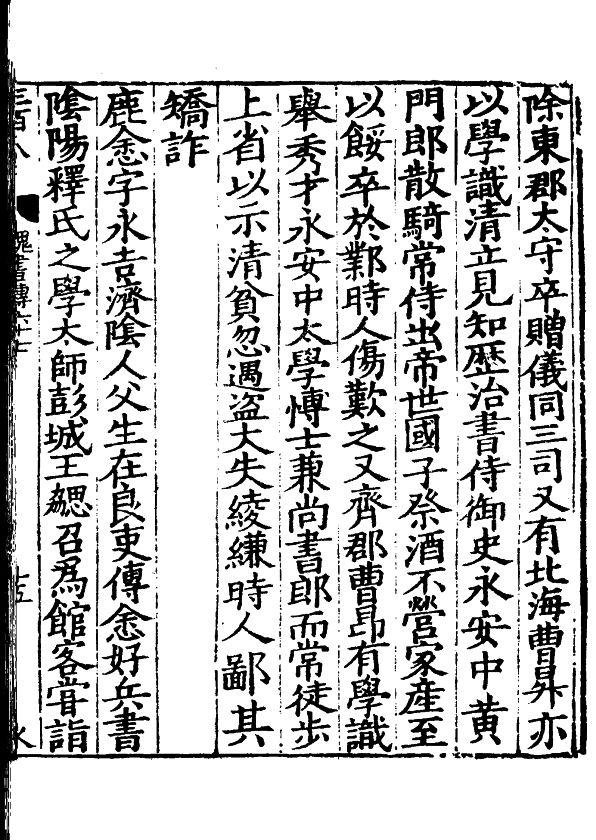 除東郡太守卒贈儀同三司又有北海曹昇亦
以學識清立見知歷治書侍御史永安中黄
門郎散騎常侍出帝世國子祭酒不營家產至
以餒卒於鄴時人傷歎之又齊郡曹昂有學識
舉秀才永安中太學博士兼尚書郎而常徒步
上省以示清貧忽遇盗大失綾縑時人鄙其
矯詐
鹿悆字永吉濟隂人父生在良吏傳悆好兵書
隂陽釋氏之學太師彭城王勰召爲館客嘗詣
三百八 魏書傳六十七 七五